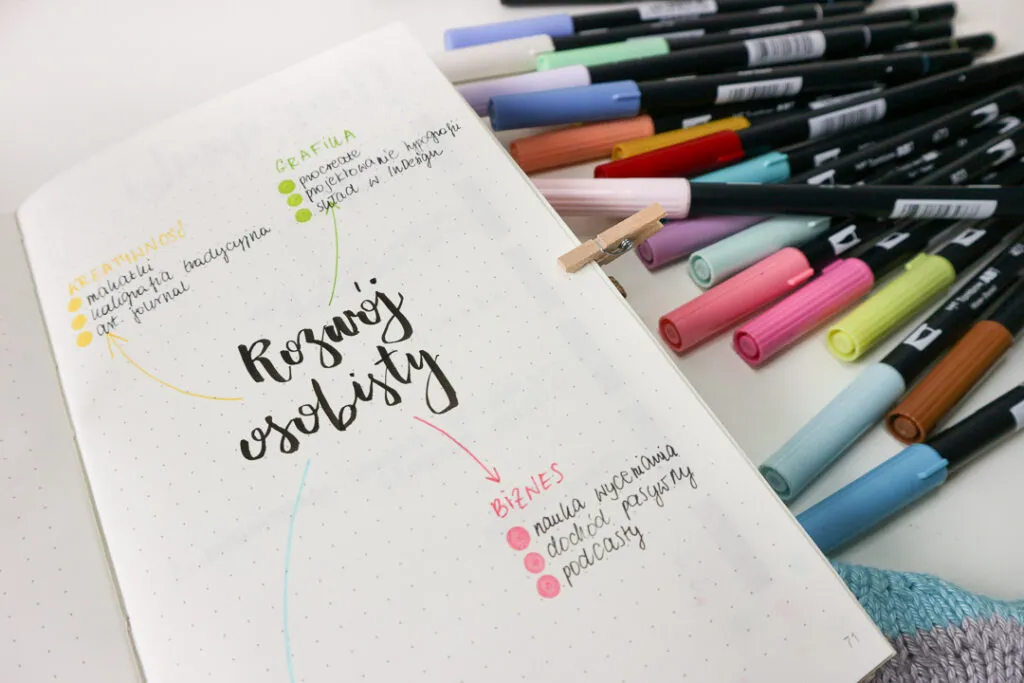 GRAFIKA
procreate
projektowanie typografii
skład w InDesign
KREATYWNOŚĆ
makatki
kaligrafia tradycyjna
art journal
Rozwój
osobisty
BIZNES
nauka wyceniania
dochód pasywny
podcasty
71